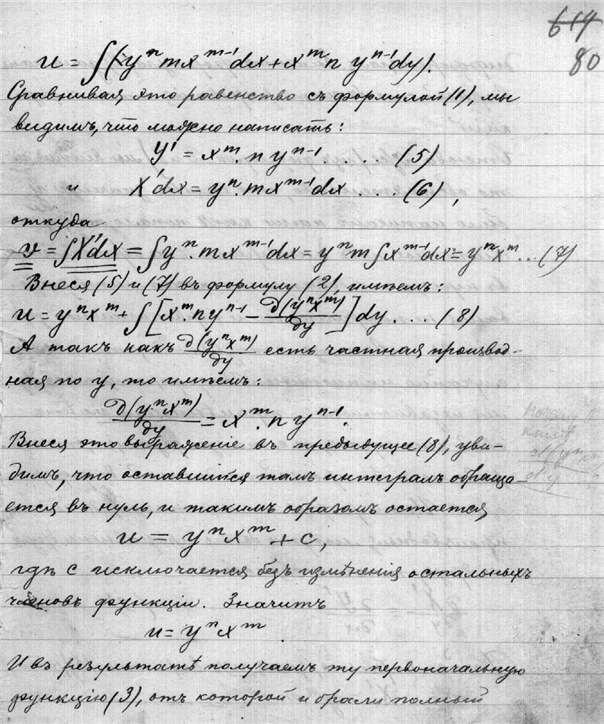 614
80
u = ∫(yⁿ m xᵐ⁻¹ dx + xᵐ n yⁿ⁻¹ dy).
Сравнивая это равенство съ формулой (1), мы
видимъ, что можно написать:
Y' = xᵐ . n yⁿ⁻¹ . . . (5)
и X'dx = yⁿ . m xᵐ⁻¹ dx . . . (6),
откуда
v = ∫X'dx = ∫yⁿ . m xᵐ⁻¹ dx = yⁿ m ∫xᵐ⁻¹ dx = yⁿ xᵐ . . (7)
Внеся (5) и (7) въ формулу (2), имѣемъ:
u = yⁿ xᵐ + ∫[xᵐ . n yⁿ⁻¹ − ∂(yⁿ xᵐ)/∂y] dy . . . . (8)
А такъ какъ ∂(yⁿ xᵐ)/∂y есть частная производ-
ная по y, то имѣемъ:
∂(yⁿ xᵐ)/∂y = xᵐ . n yⁿ⁻¹.
Внеся это выражение въ предыдущее (8), уви-
димъ, что оставшийся тамъ интегралъ обраща-
ется въ нуль, и такимъ образомъ остается
u = yⁿ xᵐ + c,
гдѣ c исключается безъ измѣнения остальныхъ
членовъ функции. Значитъ
u = yⁿ xᵐ.
И въ результатѣ получаемъ ту первоначальную
функцию (3), отъ которой и брали полный